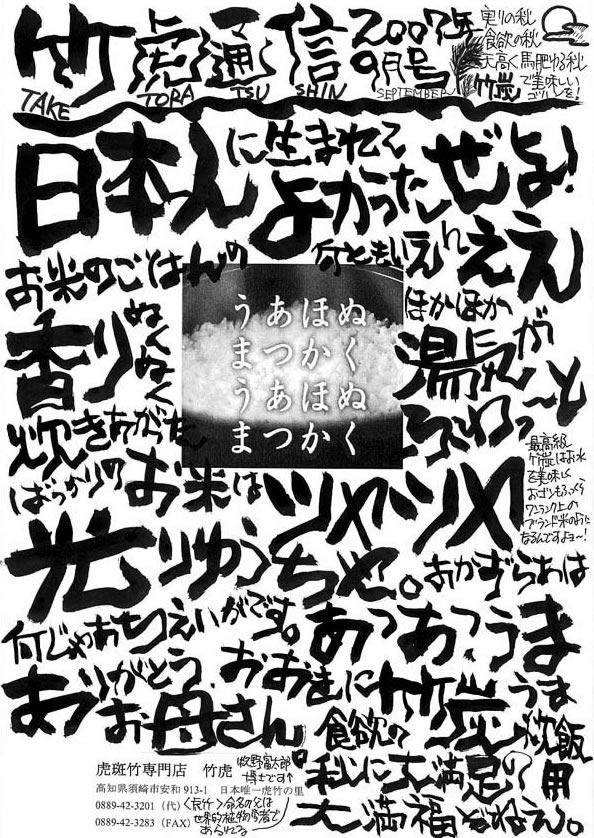 竹虎通信
TAKE TORA TSU SHIN
2007年
9月号
SEPTEMBER
実りの秋
食欲の秋
天高く馬肥ゆる秋
竹炭で美味しい
ゴハンを!
日本人に生まれて
よかったぜよ!
お米のごはんの
何ともいえんええ
香り
ぬくぬく
うあほぬ
まつかく
うあほぬ
まつかく
ほかほか
湯気が
ふわっ〜と
炊きあがった
ばっかりのお米は
ツヤツヤ
最高級
竹炭はお水
を美味しく
おゴハンもふっくら
ワンランク上の
ブランド米のように
なるんですよ〜!
光りゆうちや。
おかずらあは
何じゃあちっえいがです。
あつあつうま
うま
ありがとう
お母さん
おおきに竹炭
炊飯用
食欲の
秋に大満足の
大満福ぞねえ。
虎斑竹専門店 竹虎
牧野富太郎
博士です↑
高知県須崎市安和913-1 日本唯一虎竹の里
0889-42-3201(代)
0889-42-3283(FAX)
<虎竹>命名の父は
世界的植物学者で
あられる